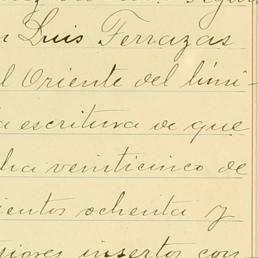 Luis Terrazas
l Oriente del lími-
a escritura de que
ha veinticinco de
ientos ochenta y
insertos con